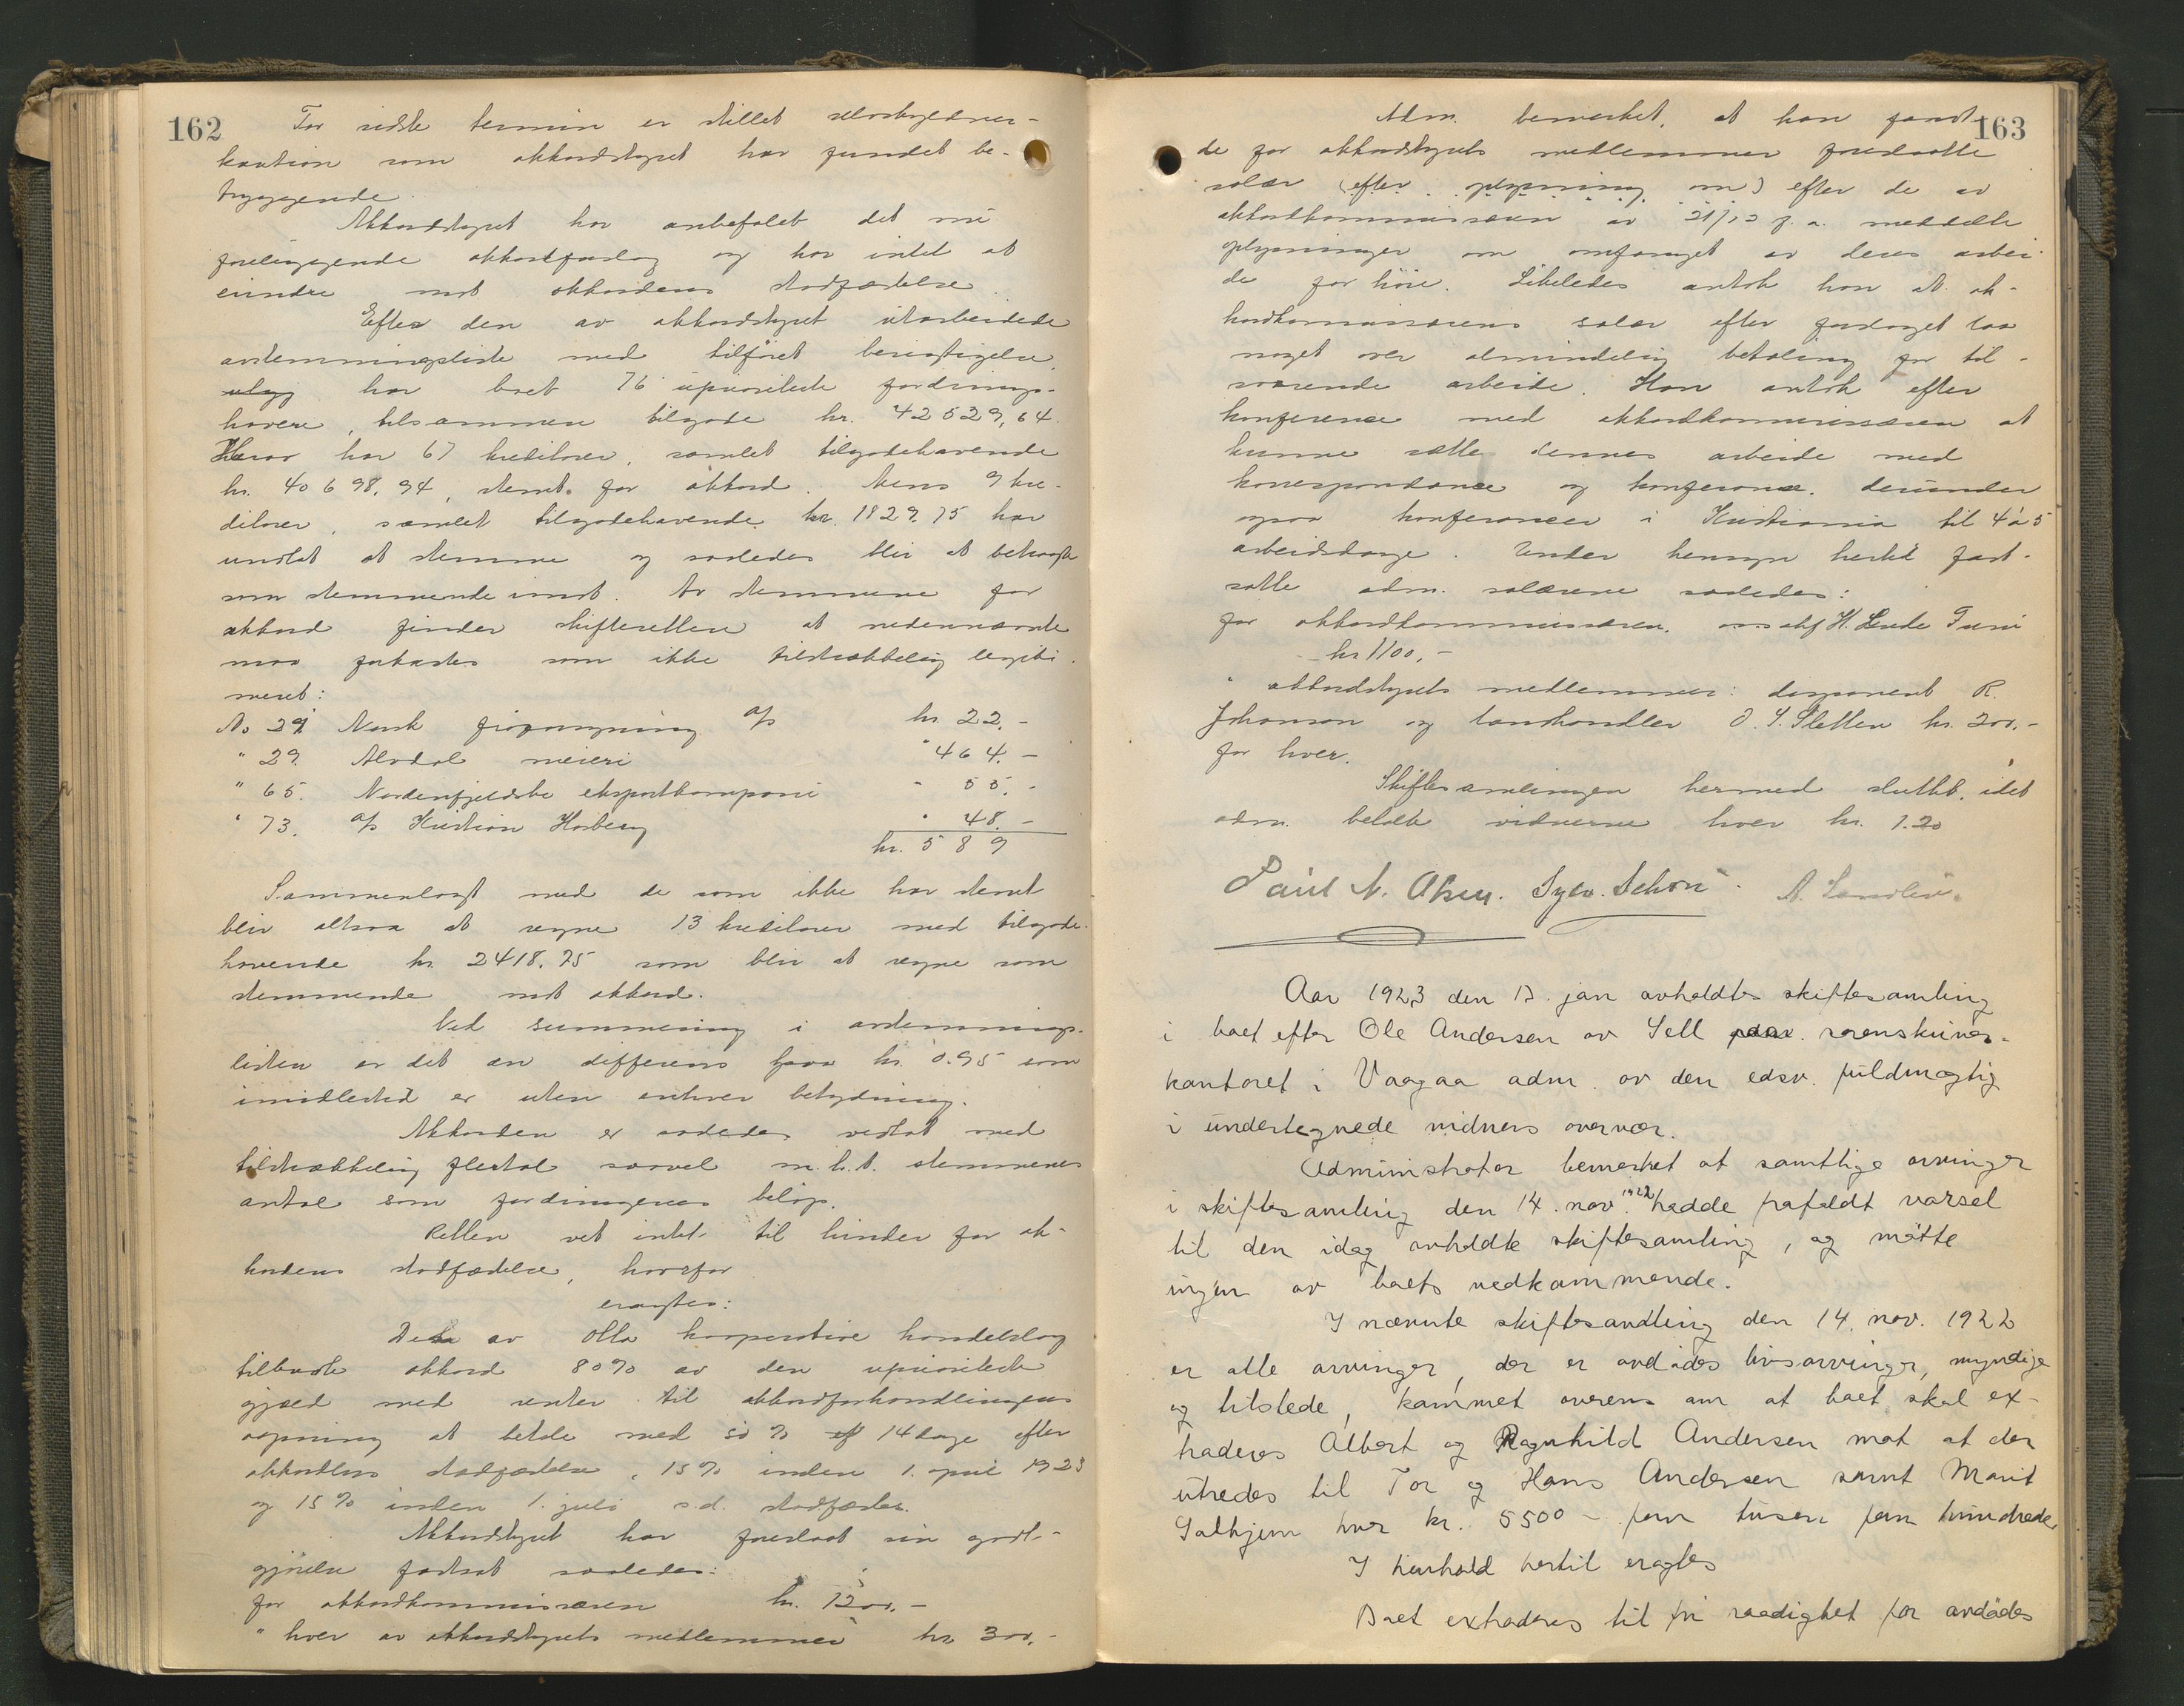 162
For sidste termin er stillet selvskyldner-
kaution som akkordstyret har fundet be-
tryggende.
Akkordstyret har anbefalet det nu
foreliggende akkordforslag og har intet at
erindre mot akkordens stadfæstelse.
Efter den av akkordstyret utarbeidede
avstemningsliste med tilføiet berigtigelse
har boet 76 uprioriterte fordrings-
havere, tilsammen tilgode kr. 42529,64.
Herav har 67 kreditorer, samlet tilgodehavende
kr. 40698.94, stemt for akkord. Mens 9 kre-
ditorer, samlet tilgodehavende kr. 1829.75 har
undlat at stemme og saaledes blir at betragte
som stemmende imot. Av stemmene for
akkord finder skifteretten at nedennævnte
maa forkastes som ikke tilstrækkelig legiti-
meret:
No 29 Norsk a/s kr. 22.-
" 29. Alvdal meieri " 464.-
" 65. Nordenfjeldske eksportkompani " 55.-
" 73. a/s Kristian " 48.-
kr. 589
Sammenlagt med de som ikke har stemt
blir altsaa at regne 13 kreditorer med tilgode-
havende kr. 2418.75 som blir at regne som
stemmende mot akkord.
Ved summering i avstemnings-
listen er det en differens paa kr. 0.95 som
imidlertid er uten enhver betydning.
Akkorden er saaledes vedtat med
tilstrækkelig flertal saavel m.h.t. stemmenes
antal som fordringenes beløp.
Retten vet intet til hinder for ak-
kordens stadfæstelse, hvorfor
eragtes:
Den av Otta kooperative handelslag
tilbudte akkord 80% av den uprioriterte
gjæld med renter til akkordforhandlingens
aapning at betale med 50% 14 dage efter
akkordens stadfæstelse, 15% inden 1. april 1923
og 15% inden 1. juli s.d. stadfæstes.
Akkordstyret har foreslaat sin godt-
gjørelse fastsat saaledes:
for akkordkommissæren kr. 1200.-
" hver av akkordstyrets medlemmer kr. 300.-
163
Adm. bemerket, at han fandt
de for akkordstyrets medlemmer foreslaatte
salær (efter oplysning om) efter de av
akkordkommissæren av 21/12 f.a. meddelte
oplysninger om omfanget av deres arbei-
de for høie. Likeledes antok han at ak-
kordkommissærens salær efter forslaget laa
noget over almindelig betaling for til-
svarende arbeide. Han antok efter
konferense med akkordkommissæren at
kunne sætte dennes arbeide med
korrespondanse og konferanse, derunder
ogsaa konferanser i Kristiania til 4 à 5
arbeidsdage. Under hensyn hertil fast-
satte adm. salærene saaledes:
for akkordkommissæren, H. Lunde
kr 1100.-
" akkordstyrets medlemmer: disponent R.
Johanson og landhandler O. S. Sletten kr. 200.-
for hver.
Skiftesamlingen hermed sluttet, idet
adm. betalte vidnerne hver kr. 1.20
Paul N. Olsen.
Aar 1923 den 13. jan avholdtes skiftesamling
i boet efter Ole Andersen av Sell sorenskriver-
kontoret i Vaagaa adm. av den edsv. fuldmægtig
i undertegnede vidners overvær.
Administrator bemerket at samtlige arvinger
i skiftesamling den 14. nov. 1922 hadde frafaldt varsel
til den idag avholdte skiftesamling, og møtte
ingen av boets vedkommende.
I nævnte skiftesamling den 14. nov. 1922
er alle arvinger, der er avdødes livsarvinger, myndige
og tilstede, kommet overens om at boet skal ex-
traderes Albert og Ragnhild Andersen mot at der
utredes til Tor og Hans Andersen samt Marit
hver kr. 5500 - fem tusen fem hundrede
I henhold hertil eragtes
Boet extraderes til fri raadighet for avdødes